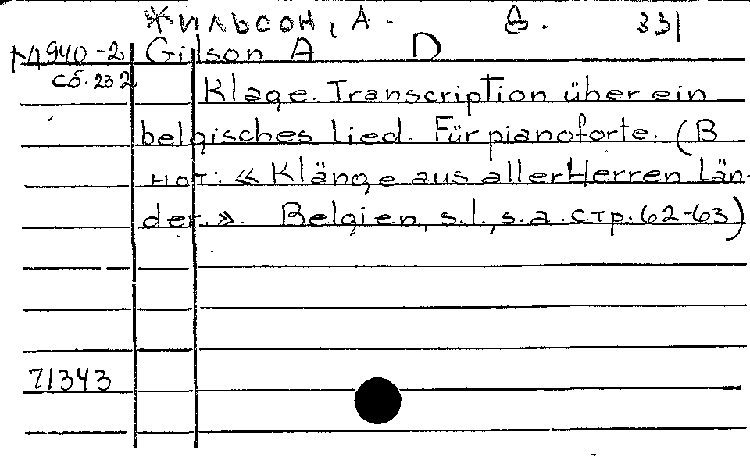 Жильсон, А. ф. 331
М940-2 Gilson A D
сб. 232 Klage. Transcription über ein
belgisches lied. Für pianoforte. (В
нот: «Klänge aus aller Herren Län-
der.». Belgien, s.l., s.a. стр. 62-63)
71343